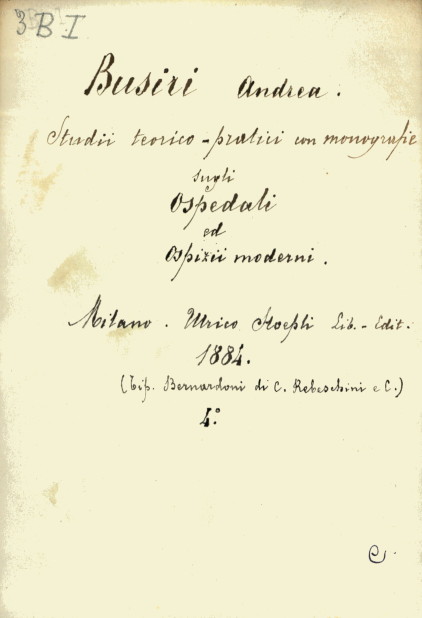 3 B I
Busiri Andrea.
Studii teorico-pratici con monografie
sugli
Ospedali
ed
Ospizii moderni.
Milano. Ulrico Hoepli Lib.-Edit.
1884.
(Tip. Bernardoni di C. Rebeschini e C.)
4.°
C.